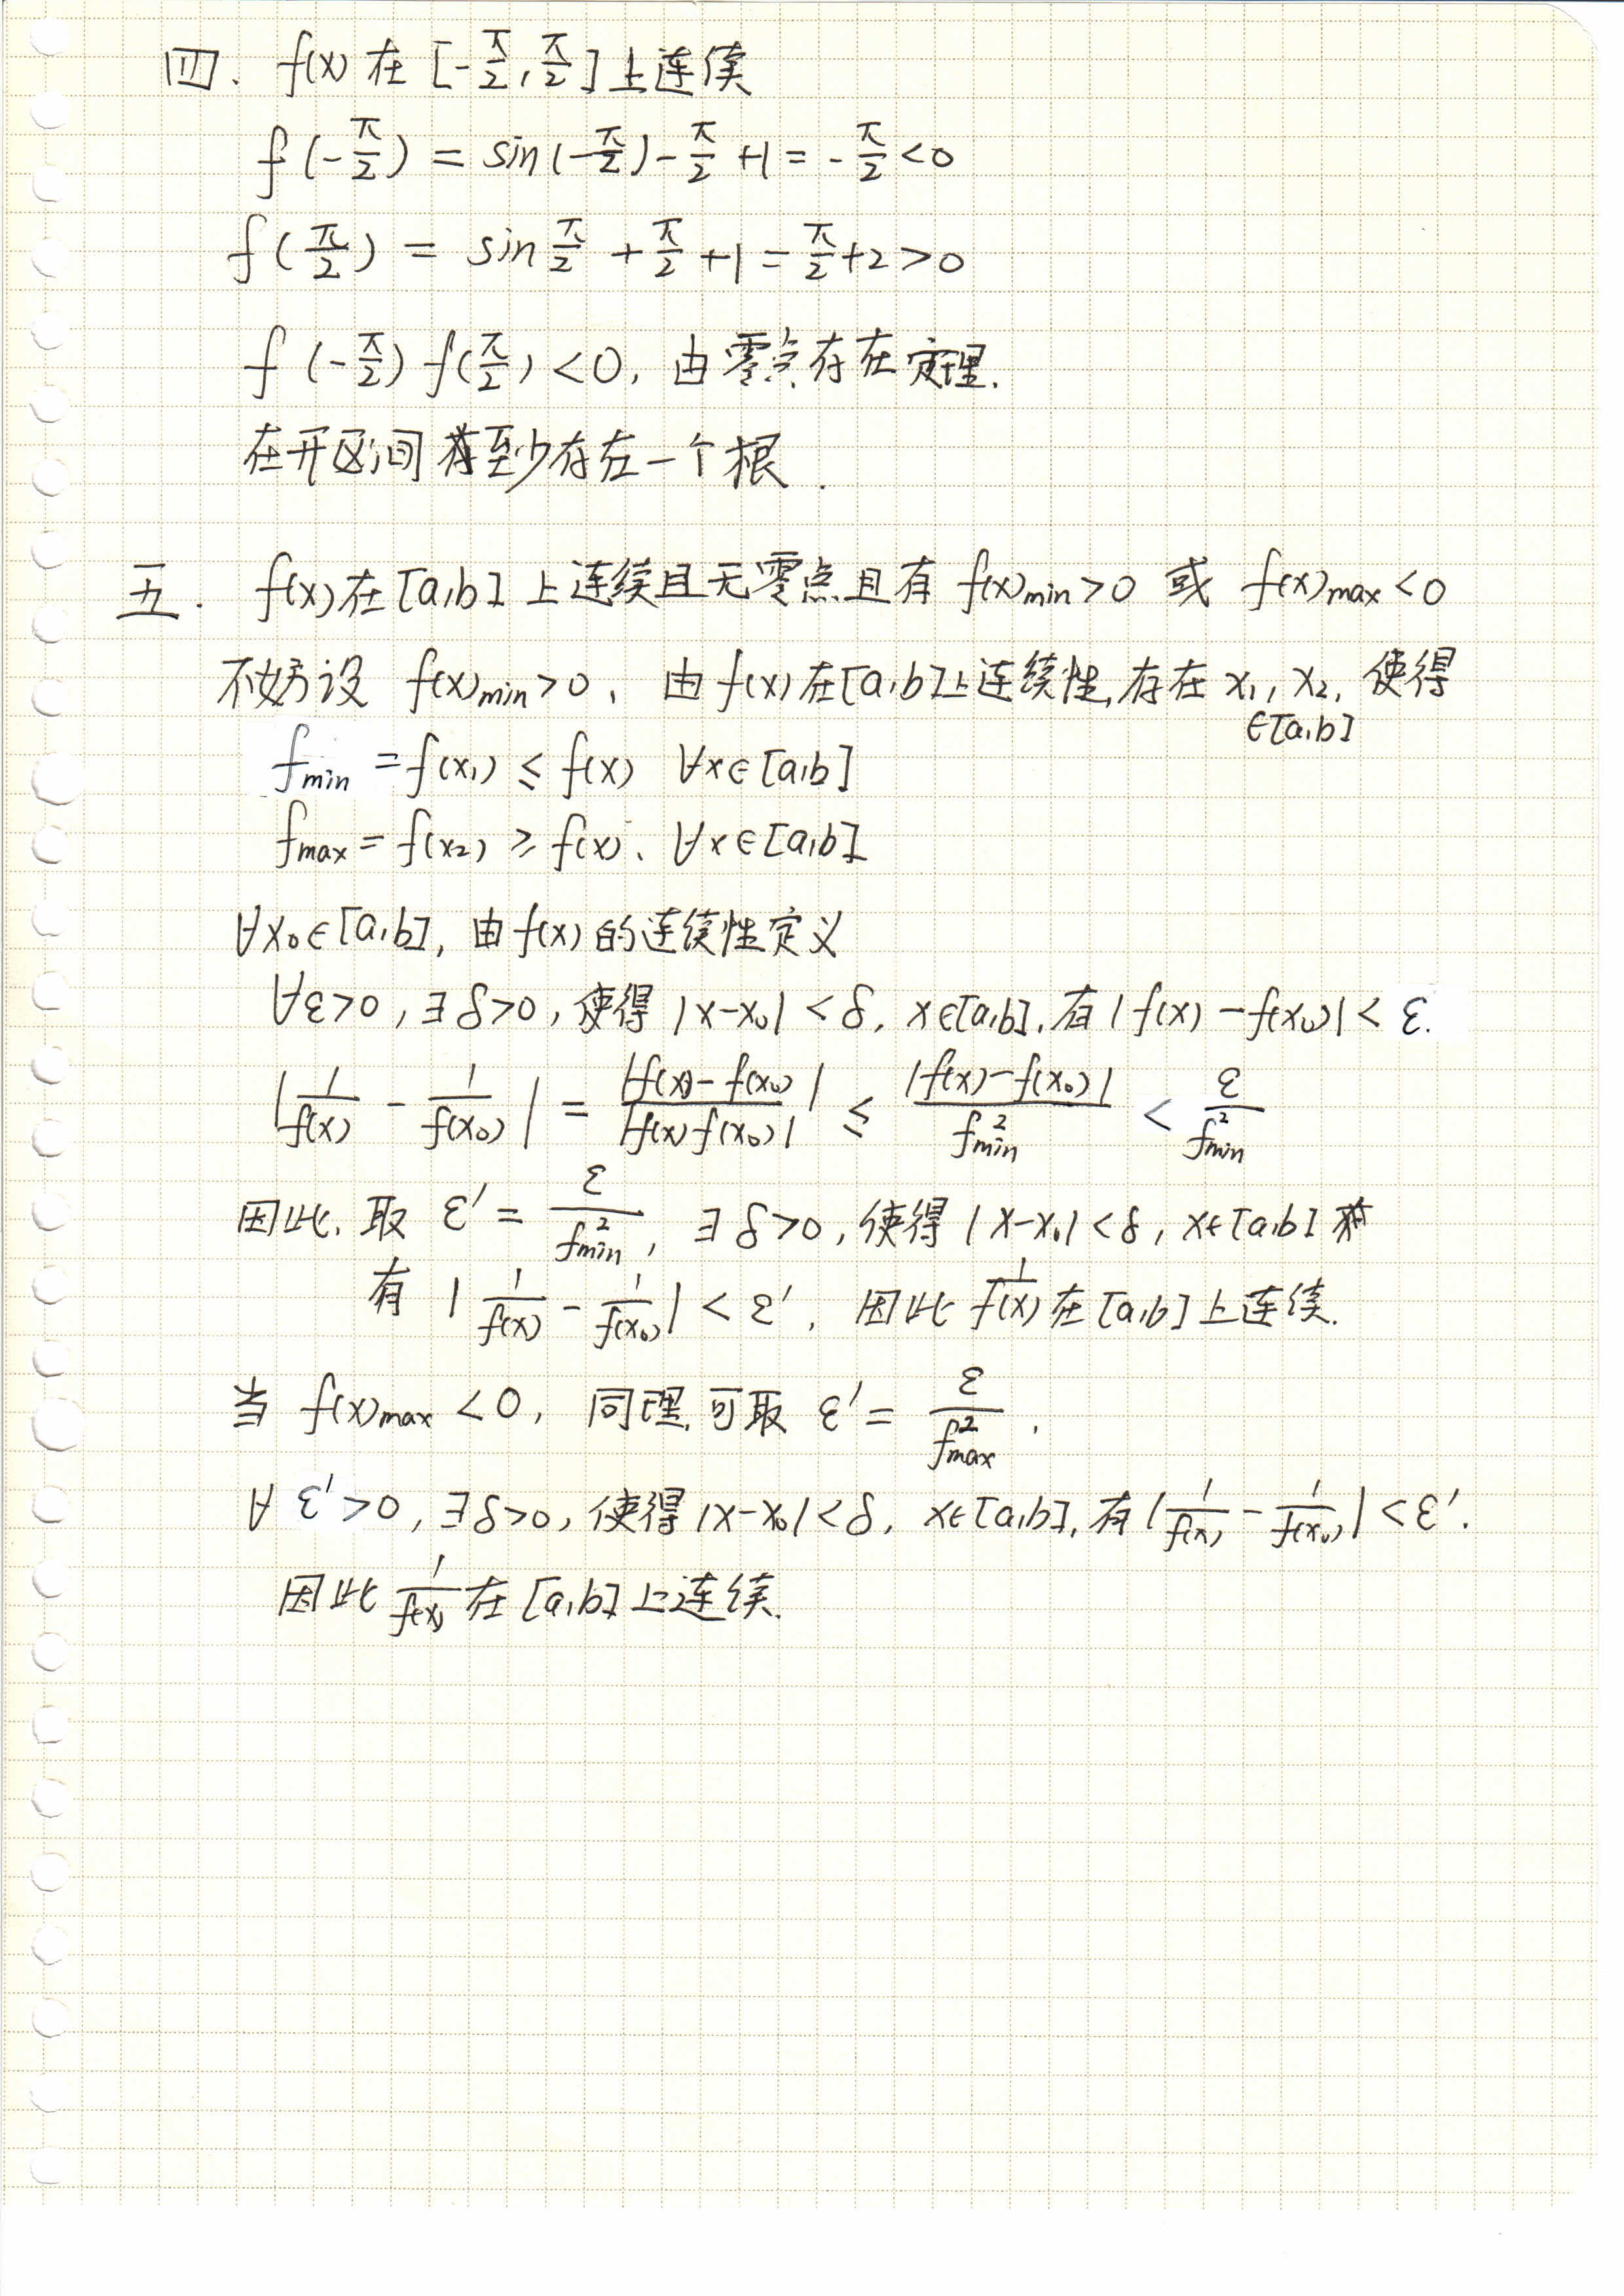 四. f(x) 在 [-π/2, π/2] 上连续
f(-π/2) = sin(-π/2) - π/2 + 1 = -π/2 < 0
f(π/2) = sin π/2 + π/2 + 1 = π/2 + 2 > 0
f(-π/2) f(π/2) < 0, 由零点存在定理.
在开区间 至少存在一个根.
五. f(x) 在 [a,b] 上连续且无零点且有 f(x)min > 0 或 f(x)max < 0
不妨设 f(x)min > 0、由 f(x) 在 [a,b] 上连续性, 存在 x₁, x₂, 使得
∈[a,b]
fmin = f(x₁) ≤ f(x) ∀x∈[a,b]
fmax = f(x₂) ≥ f(x)、∀x∈[a,b]
∀x₀∈[a,b], 由 f(x) 的连续性定义
∀ε>0, ∃δ>0, 使得 |x-x₀| < δ, x∈[a,b], 有 |f(x) - f(x₀)| < ε.
|1/f(x) - 1/f(x₀)| = |f(x) - f(x₀)| / |f(x) f(x₀)| ≤ |f(x) - f(x₀)| / f²min < ε / f²min
因此, 取 ε' = ε / f²min, ∃δ>0, 使得 |x-x₀| < δ, x∈[a,b]
有 |1/f(x) - 1/f(x₀)| < ε', 因此 1/f(x) 在 [a,b] 上连续.
当 f(x)max < 0, 同理, 可取 ε' = ε / f²max.
∀ε'>0, ∃δ>0, 使得 |x-x₀| < δ, x∈[a,b], 有 |1/f(x) - 1/f(x₀)| < ε'.
因此 1/f(x) 在 [a,b] 上连续.